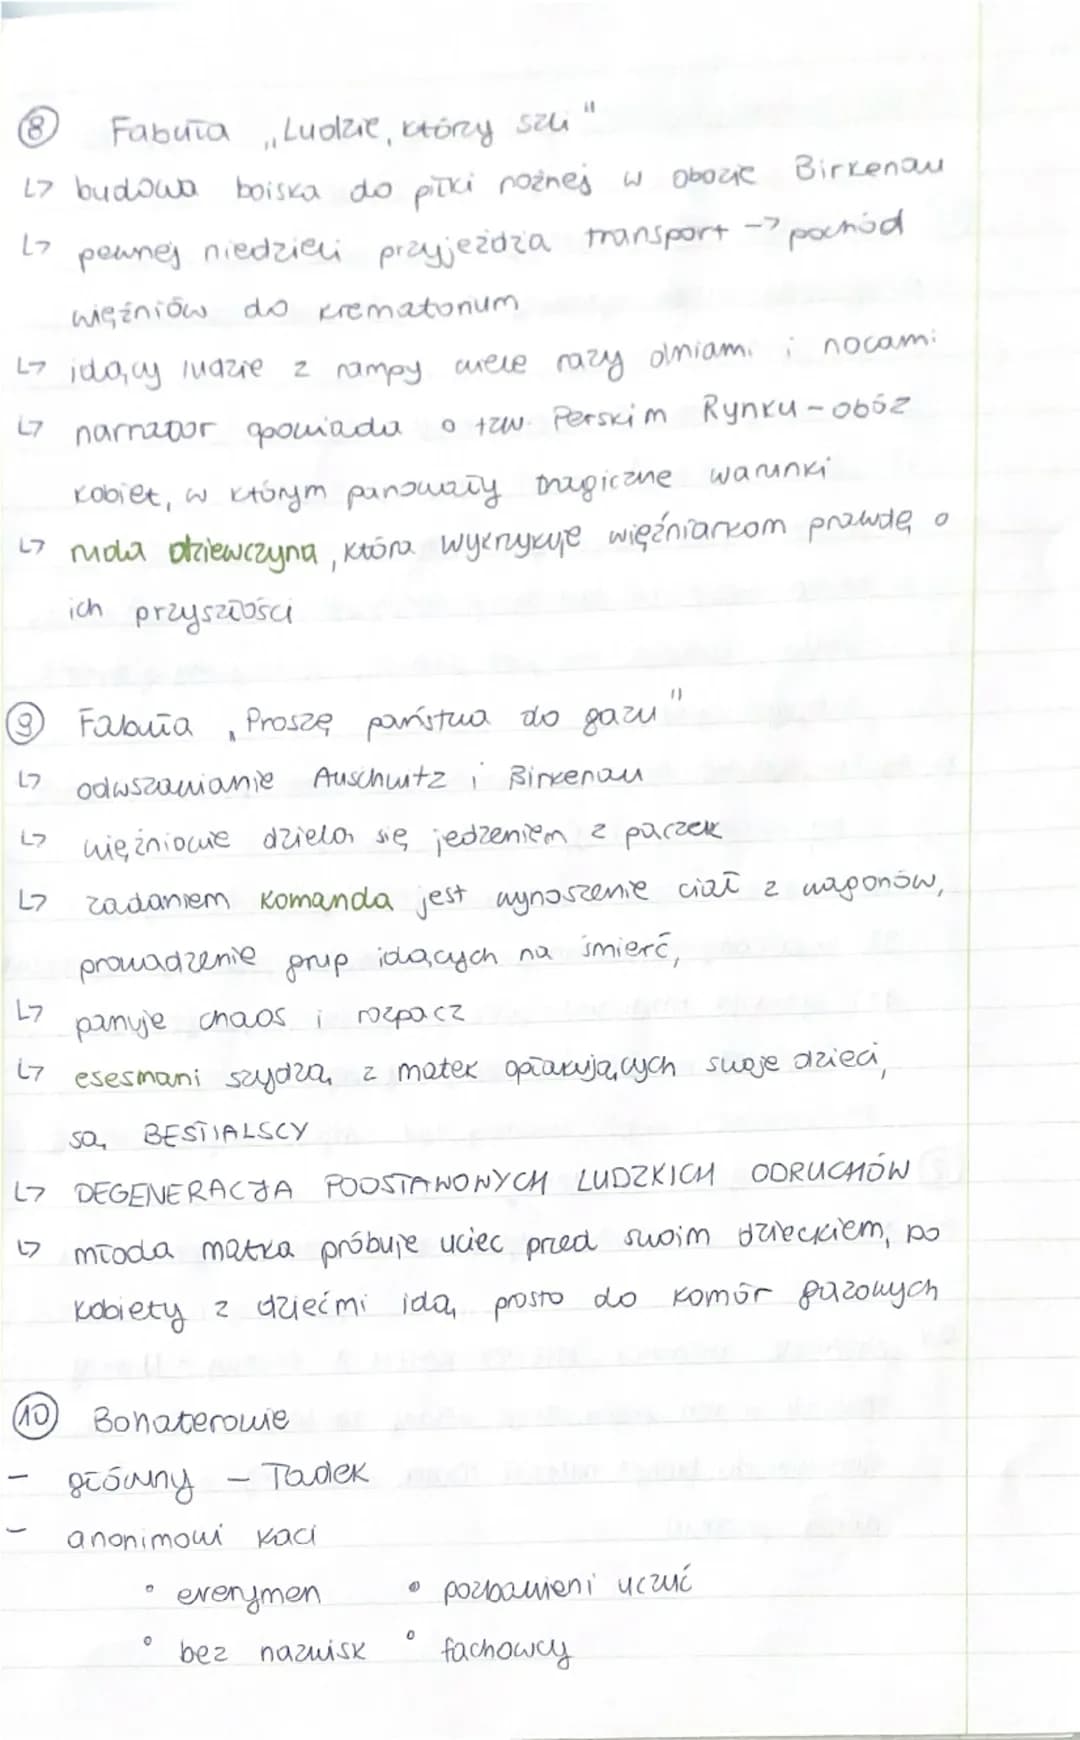 ⑧ Fabuła „Ludzie, którzy szli"
↳ budowa boiska do piłki nożnej w obozie Birkenau
↳ pewnej niedzieli przyjeżdża transport -> pochód
więźniów do krematorium
↳ idący ludzie z rampy wiele razy dniami i nocami
↳ narrator opowiada o tzw. Perskim Rynku - obóz
kobiet, w którym panowały tragiczne warunki
↳ ruda dziewczyna, która wykrzykuje więźniarkom prawdę o
ich przyszłości
⑨ Fabuła „Proszę państwa do gazu"
↳ odwszawianie Auschwitz i Birkenau
↳ więźniowie dzielą się jedzeniem z paczek
↳ zadaniem komanda jest wynoszenie ciał z wagonów,
prowadzenie grup idących na śmierć,
↳ panuje chaos i rozpacz
↳ esesmani szydzą z matek opłakujących swoje dzieci,
są BESTIALSCY
↳ DEGENERACJA PODSTAWOWYCH LUDZKICH ODRUCHÓW
↳ młoda matka próbuje uciec przed swoim dzieckiem, bo
kobiety z dziećmi idą prosto do komór gazowych
⑩ Bohaterowie
- główny - Tadek
- anonimowi kaci
° everymen ° pozbawieni uczuć
° bez nazwisk ° fachowcy